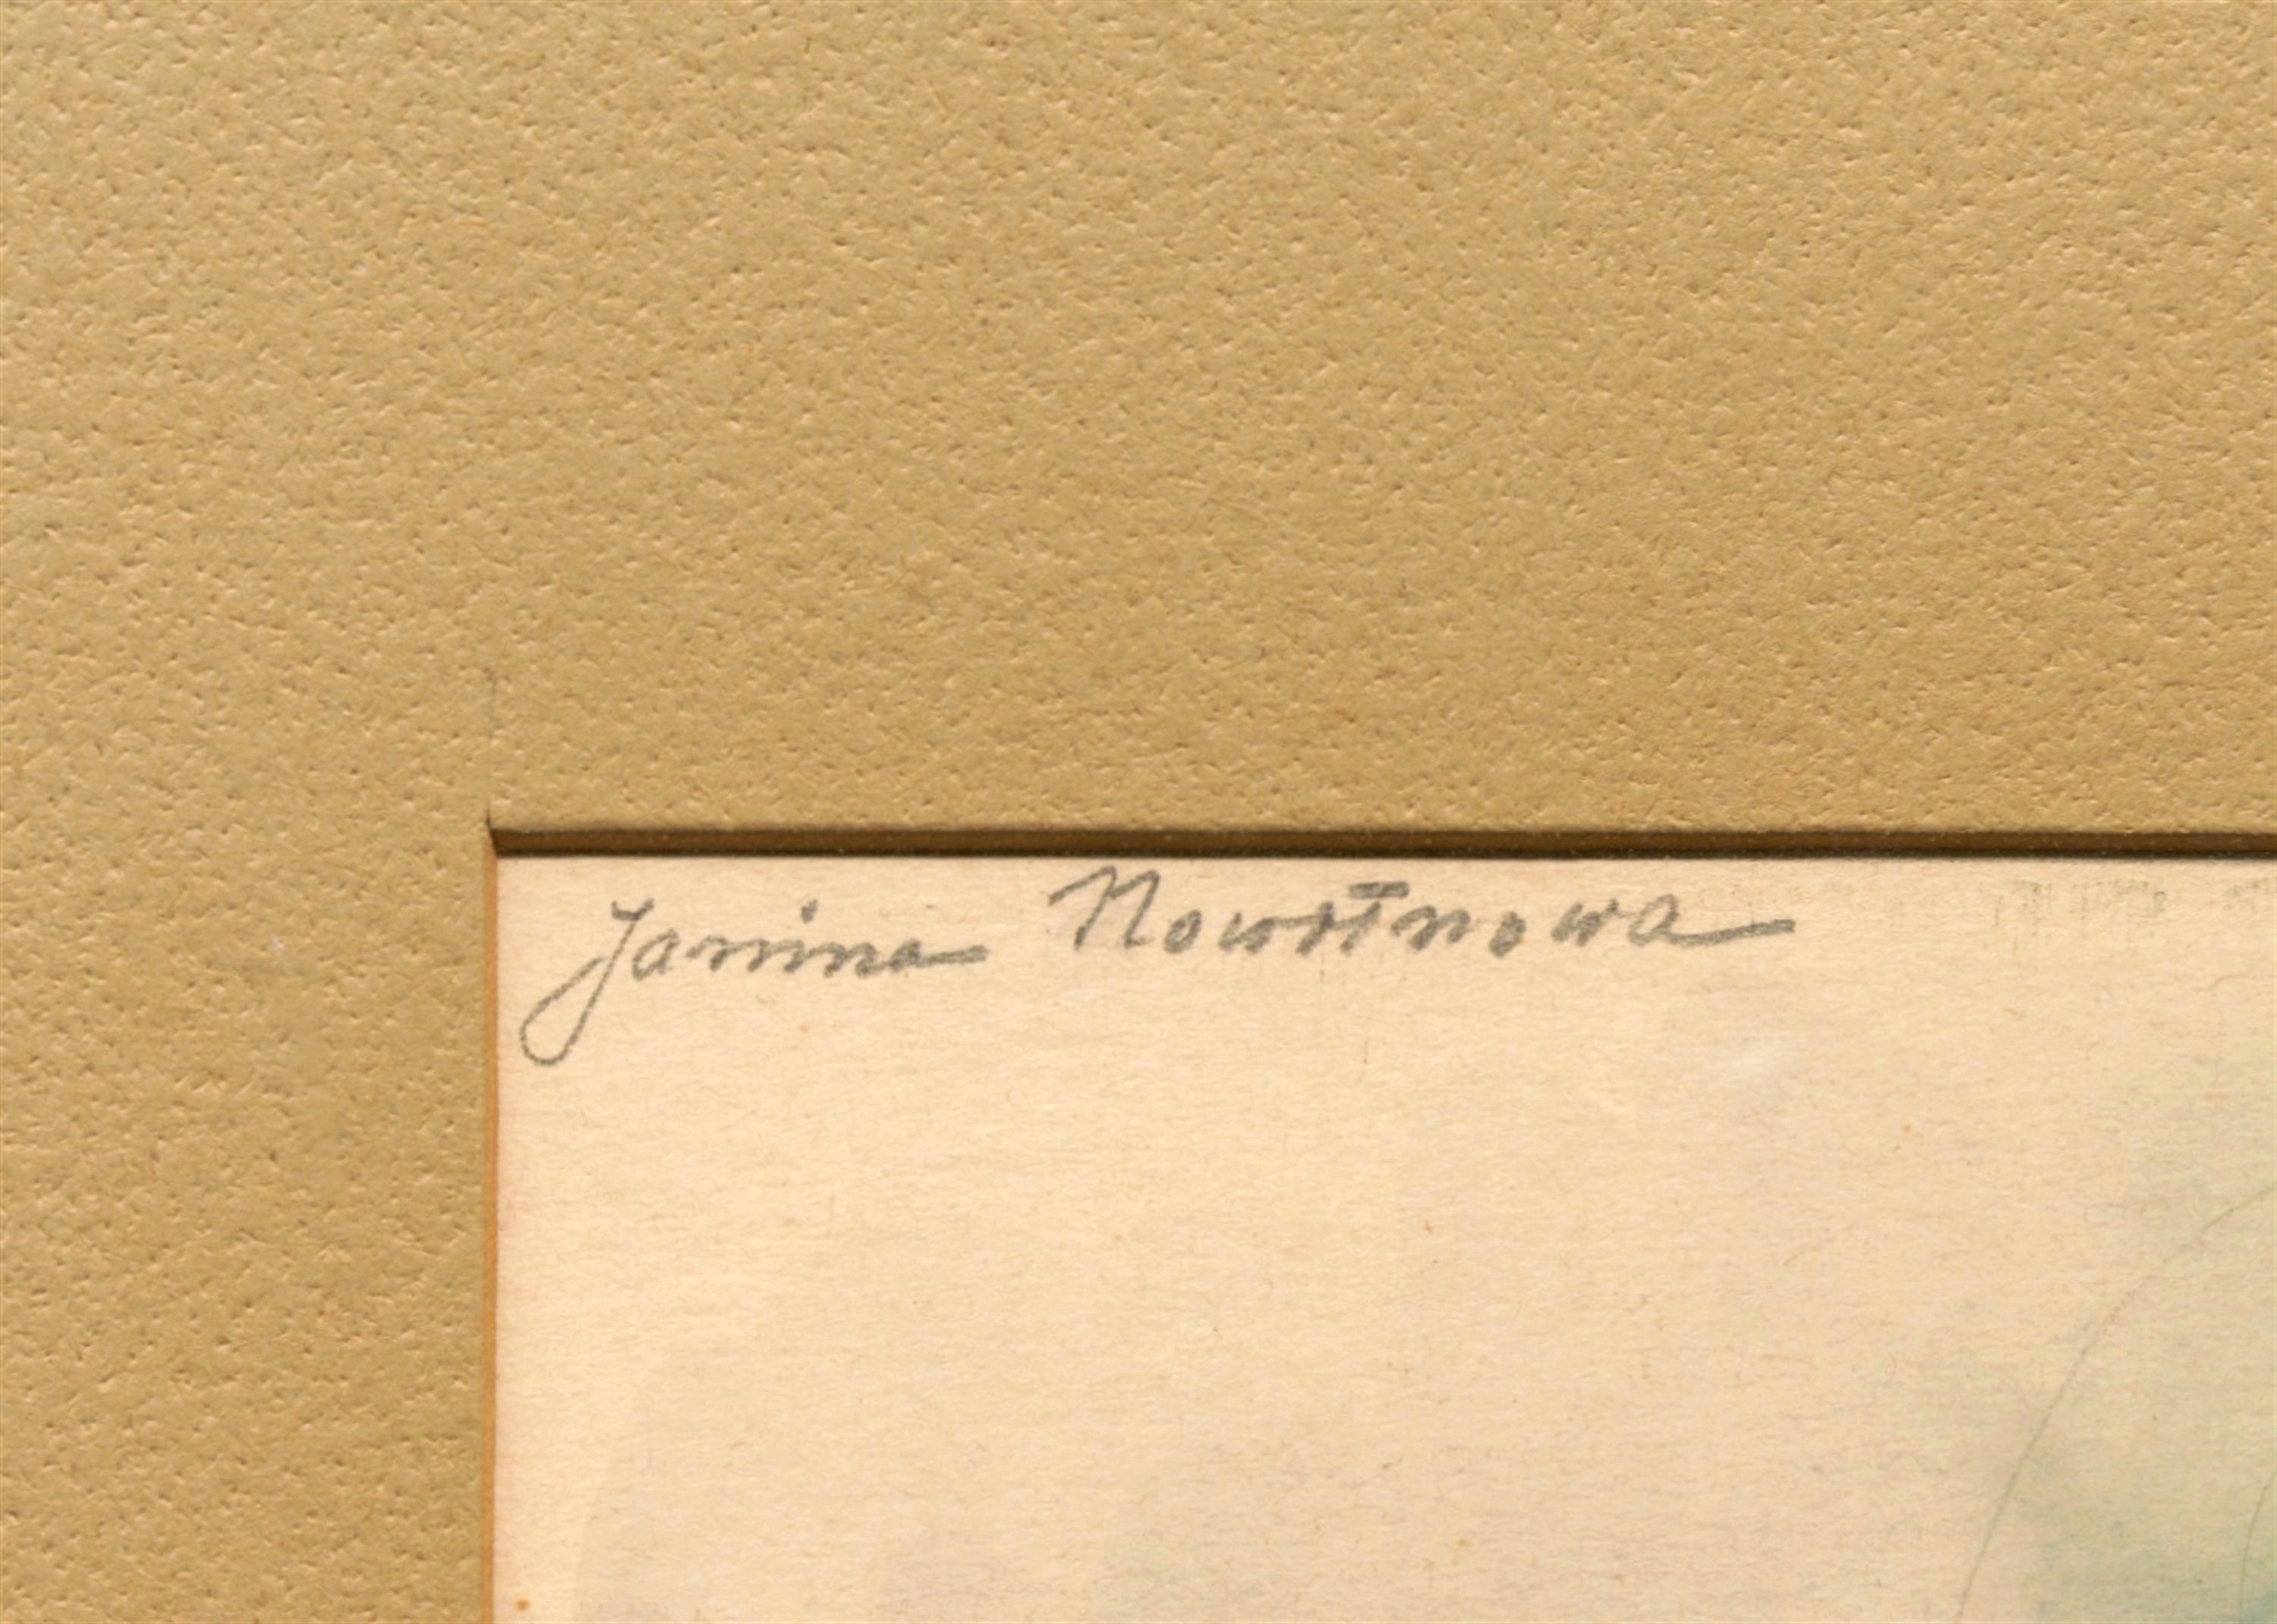 Janina Nowotnowa